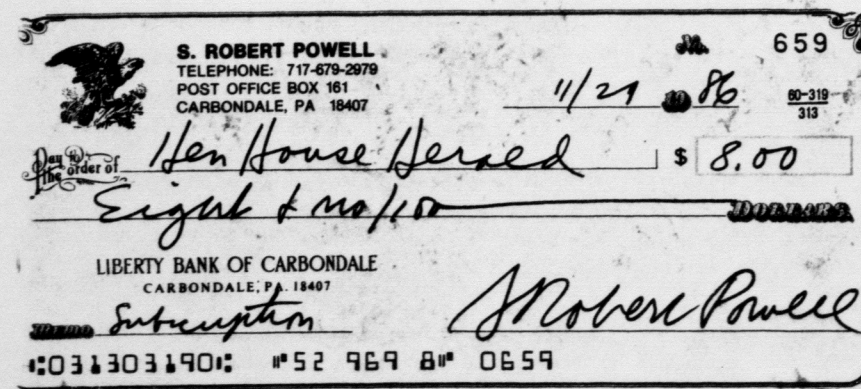 S. ROBERT POWELL
TELEPHONE: 717-679-2979
POST OFFICE BOX 161
CARBONDALE, PA 18407
No. 659
11/29 19 86
60-319
313
Pay to the order of Hen House Herald $ 8.00
Eight & no/100 DOLLARS
LIBERTY BANK OF CARBONDALE
CARBONDALE, PA. 18407
MEMO Subscription S Robert Powell
⑆031303190⑆ ⑈52 969 8⑈ 0659